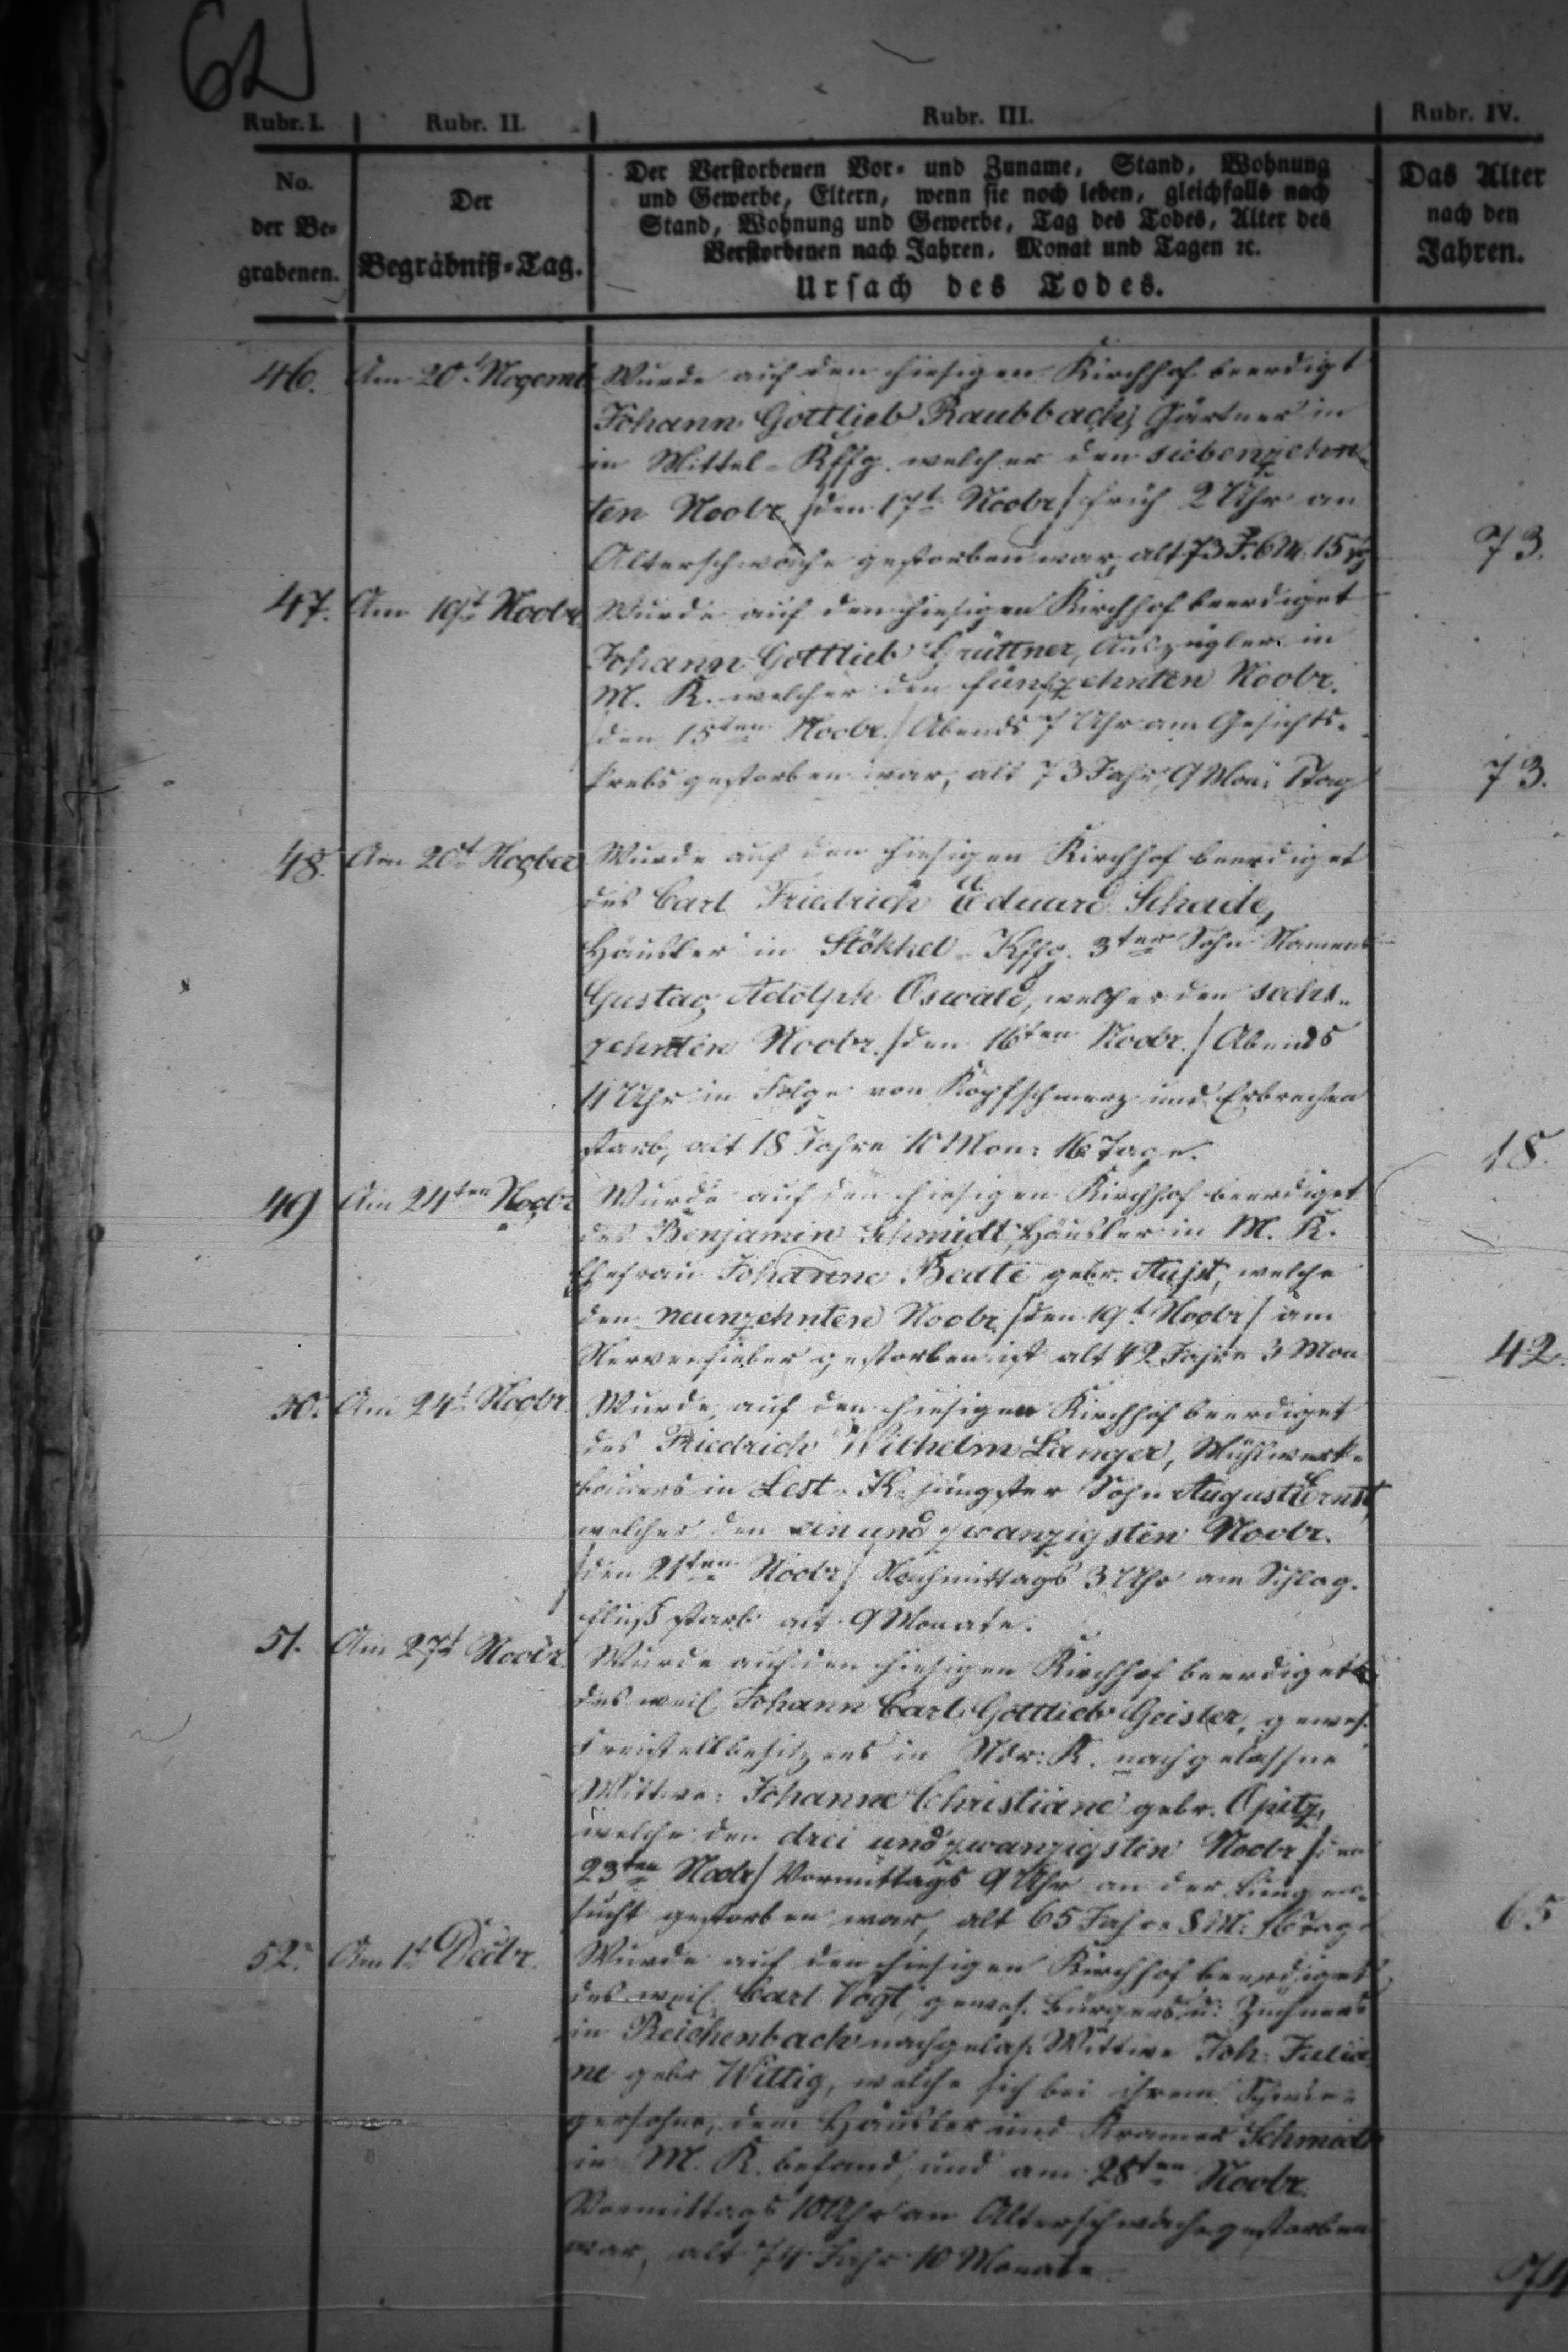 62
Rubr. I. Rubr. II. Rubr. III. Rubr. IV.
No. der Be-grabenen.
Der Begräbniß-Tag.
Der Verstorbenen Vor- und Zuname, Stand, Wohnung
und Gewerbe, Eltern, wenn sie noch leben, gleichfalls nach
Stand, Wohnung und Gewerbe, Tag des Todes, Alter des
Verstorbenen nach Jahren, Monat und Tagen ꝛc.
Ursach des Todes.
Das Alter
nach den
Jahren.
46. Am 20t Wurde auf den hiesigen Kirchhof beerdigt
Johann Gottlieb Raubbach, Gärtner in
in Mittel-Kffg. welcher den siebenzehn-
ten Novbr. /den 17t Novbr/ früh 2 Uhr an
Alterschwäche gestorben war, alt 73 J. 6 M. 15 73.
47. Am 19t Novbr Wurde auf den hiesigen Kirchhof beerdiget
Johann Gottlieb Grüttner, Auszügler in
M. K. welcher den fünfzehnten Novbr.
/den 15ten Novbr./ Abends 7 Uhr am Gesichts-
krebs gestorben war, alt 73 Jahr, 9 Mon: Tag 73.
48. Am 20t Wurde auf den hiesigen Kirchhof beerdiget
des Carl Friedrich Eduard Schade,
Häusler in Stökkel-Kffg. 3ter Sohn Namens
Gustav Adolph Oswald, welcher den sechs-
zehnten Novbr. /den 16ten Novbr./ Abends
11 Uhr in Folge von Kopfschmerz und Erbrechen
starb, alt 18 Jahre 10 Mon: 16 Tage. 18.
49 Am 24ten Novbr Wurde auf den hiesigen Kirchhof beerdiget
des Benjamin Schmidt, Häusler in M. K.
Ehefrau Johanne Beate gebr. welche
den neunzehnten Novbr /den 19t Novbr/ am
Nervenfieber gestorben ist alt 42 Jahre 3 Mon 42.
50. Am 24t Novbr. Wurde auf den hiesigen Kirchhof beerdiget
des Friedrich Wilhelm Langer,
bauers in Lest-K. jüngster Sohn August Ernst,
welcher den ein und zwanzigsten Novbr.
/den 21ten Novbr/ Nachmittags 3 Uhr am Schlag-
fluß starb alt 9 Monate.
51. Am 27t Novbr. Wurde auf den hiesigen Kirchhof beerdiget
des weil Johann Carl Gottlieb Geisler, gewes.
Freistellbesitzers in Ndr: K. nachgelassne
Wittwe: Johanne Christiane gebr. Opitz,
welche den drei und zwanzigsten Novbr /den
23ten Novbr/ Vormittags 9 Uhr an der Lungen-
sucht gestorben war, alt 65 Jahre 8 M: 16 Tage 65
52. Am 1t Decbr. Wurde auf den hiesigen Kirchhof beerdiget
des weil. Carl Vogt, gewes. Bürgers u. Züchners
in Reichenbach nachgelas. Wittwe Joh: Julia-
ne gebr Wittig, welche sich bei ihrem Schwie-
gersohne, dem Häusler und Kramer Schmidt
in M. K. befand, und am 28ten Novbr.
Vormittags 10 Uhr an Alterschwäche gestorben
war, alt 74 Jahr 10 Monate 74